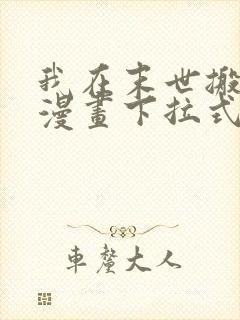 我在末世搬
漫畫下拉式
車釐大人